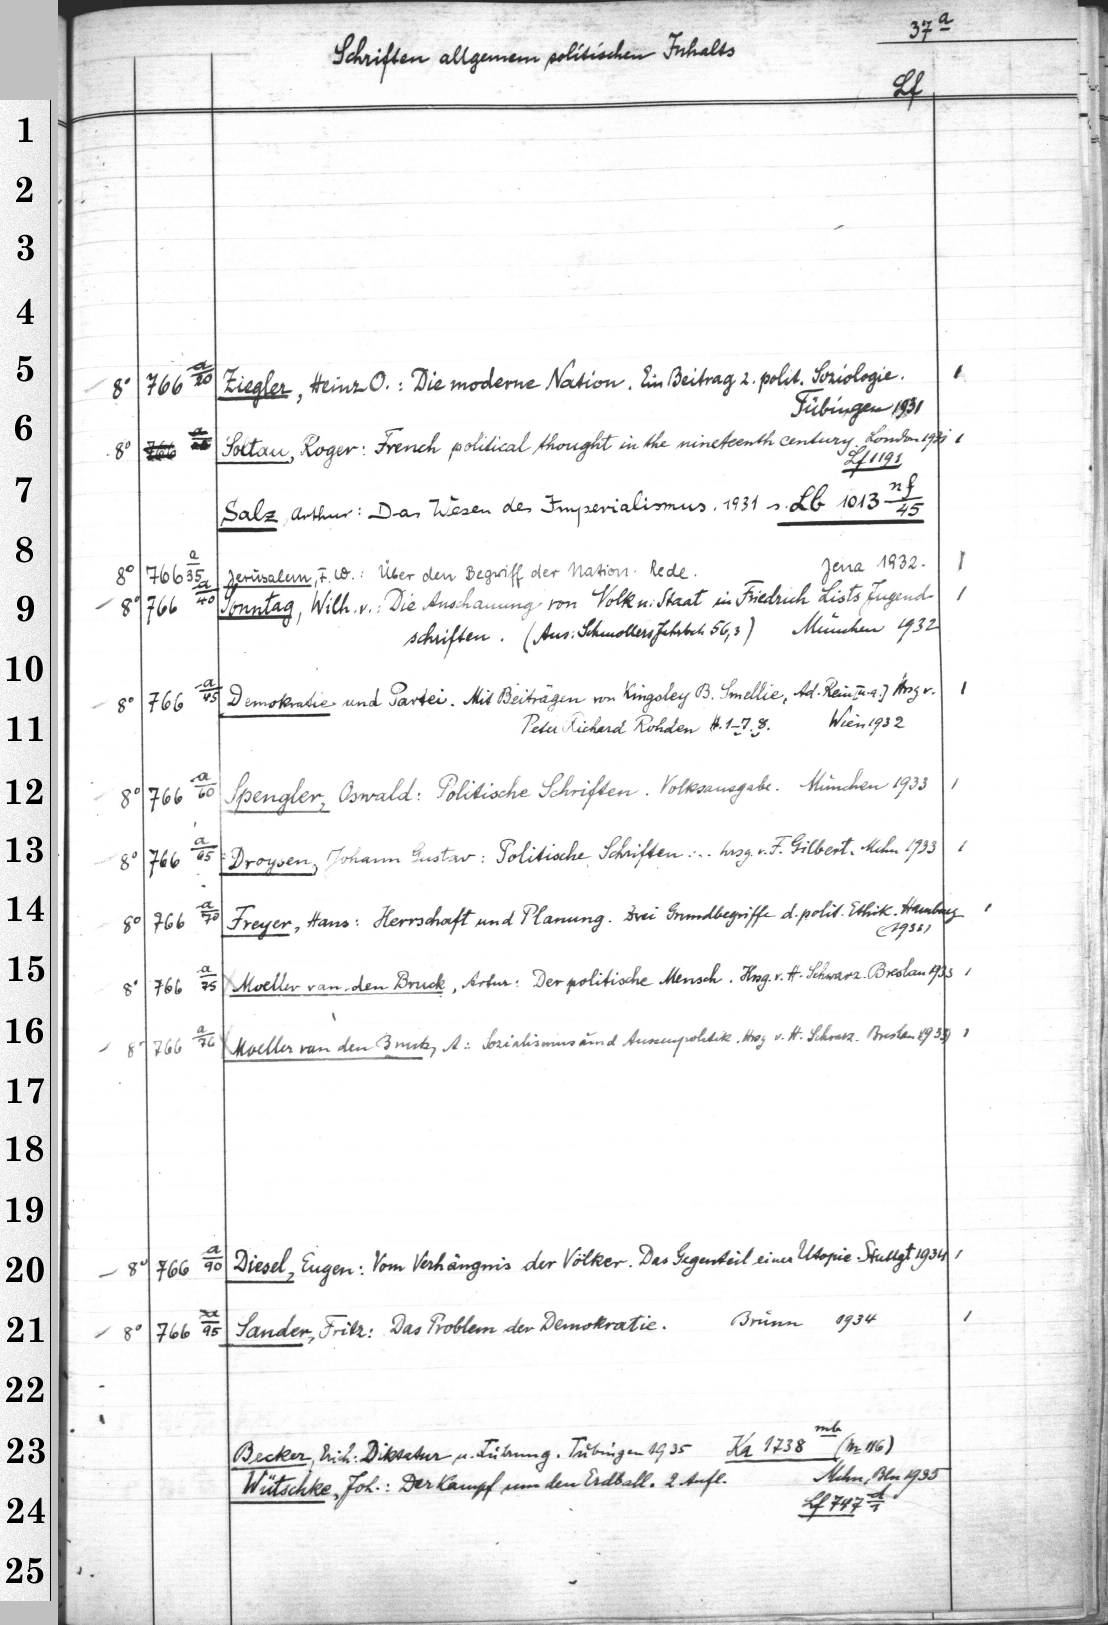 37a
Schriften allgemein politischen Inhalts
Lf
1
2
3
4
5
8° 766 a/20 Ziegler, Heinz O.: Die moderne Nation. Ein Beitrag z. polit. Soziologie.
Tübingen 1931
6
8° 766 Soltau, Roger: French political thought in the nineteenth century. London 1931
Lf 1191
7
Salz, Arthur: Das Wesen des Imperialismus. 1931 s. Lb 1013 nf/45
8
8° 766 a/35 Jerusalem, F. W.: Über den Begriff der Nation. Rede. Jena 1932.
9
8° 766 a/40 Sonntag, Wilh. v.: Die Anschauung von Volk u. Staat in Friedrich Lists Jugend-
schriften. (Aus: Schmollers Jahrbch 56,3) München 1932
10
8° 766 a/45 Demokratie und Partei. Mit Beiträgen von Kingsley B. Smellie, Ad. Rein [u. a.] Hrsg v.
11
Peter Richard Rohden H. 1-7. 8. Wien 1932
12
8° 766 a/60 Spengler, Oswald: Politische Schriften. Volksausgabe. München 1933
13
8° 766 a/65 Droysen, Johann Gustav: Politische Schriften... hrsg. v. F. Gilbert. Mchn 1933
14
8° 766 a/70 Freyer, Hans: Herrschaft und Planung. Zwei Grundbegriffe d. polit. Ethik. Hamburg
(1933)
15
8° 766 a/75 Moeller van den Bruck, Artur: Der politische Mensch. Hrsg. v. H. Schwarz. Breslau 1933
16
8° 766 a/76 Moeller van den Bruck, A.: Sozialismus und Aussenpolitik. Hrsg v. H. Schwarz. Breslau (1933)
17
18
19
20
8° 766 a/90 Diesel, Eugen: Vom Verhängnis der Völker. Das Gegenteil einer Utopie. Stuttgt 1934
21
8° 766 a/95 Sander, Fritz: Das Problem der Demokratie. Brünn 1934
22
23
Becker, Erich: Diktatur u. Führung. Tübingen 1935 Ka 1738 mb (Nr 116)
Wütschke, Joh.: Der Kampf um den Erdball. 2 Aufl. Mchn, Bln 1935
24
Lf 747 d/1
25